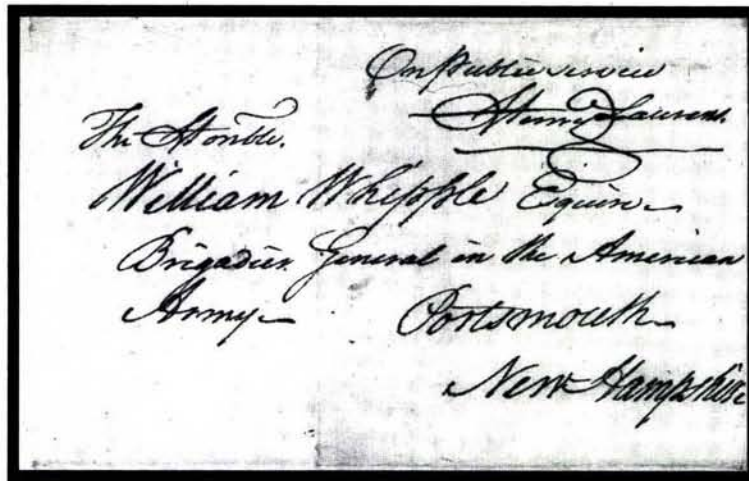 On public service
Henry Laurens.
The Honble.
William Whipple Esquire
Brigadier General in the American
Army
Portsmouth
New Hampshire